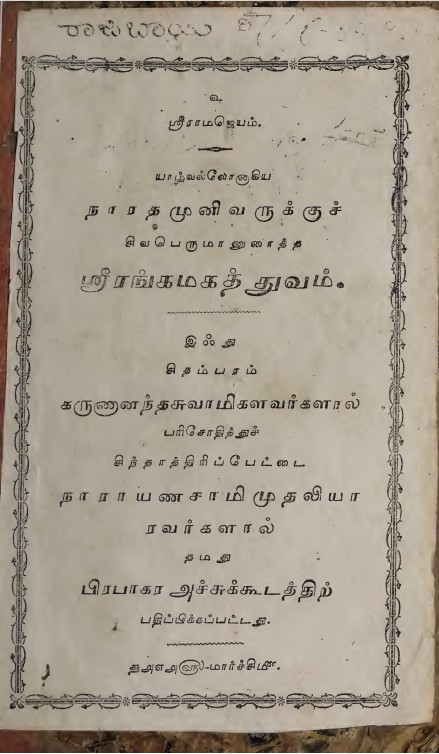 உ
ஸ்ரீராமஜெயம்.
யாழ்வல்லோனாகிய
நாரதமுனிவருக்குச்
சிவபெருமானுரைத்த
ஸ்ரீரங்கமகத்துவம்.
இஃது
சிதம்பரம்
கருணானந்தசுவாமிகளவர்களால்
பரிசோதித்துச்
சிந்தாத்திரிப்பேட்டை
நாராயணசாமிமுதலியா
ரவர்களால்
தமது
பிரபாகர அச்சுக்கூடத்திற்
பதிப்பிக்கப்பட்டது.
௲அ௭அ௵-மார்ச்சி௴.